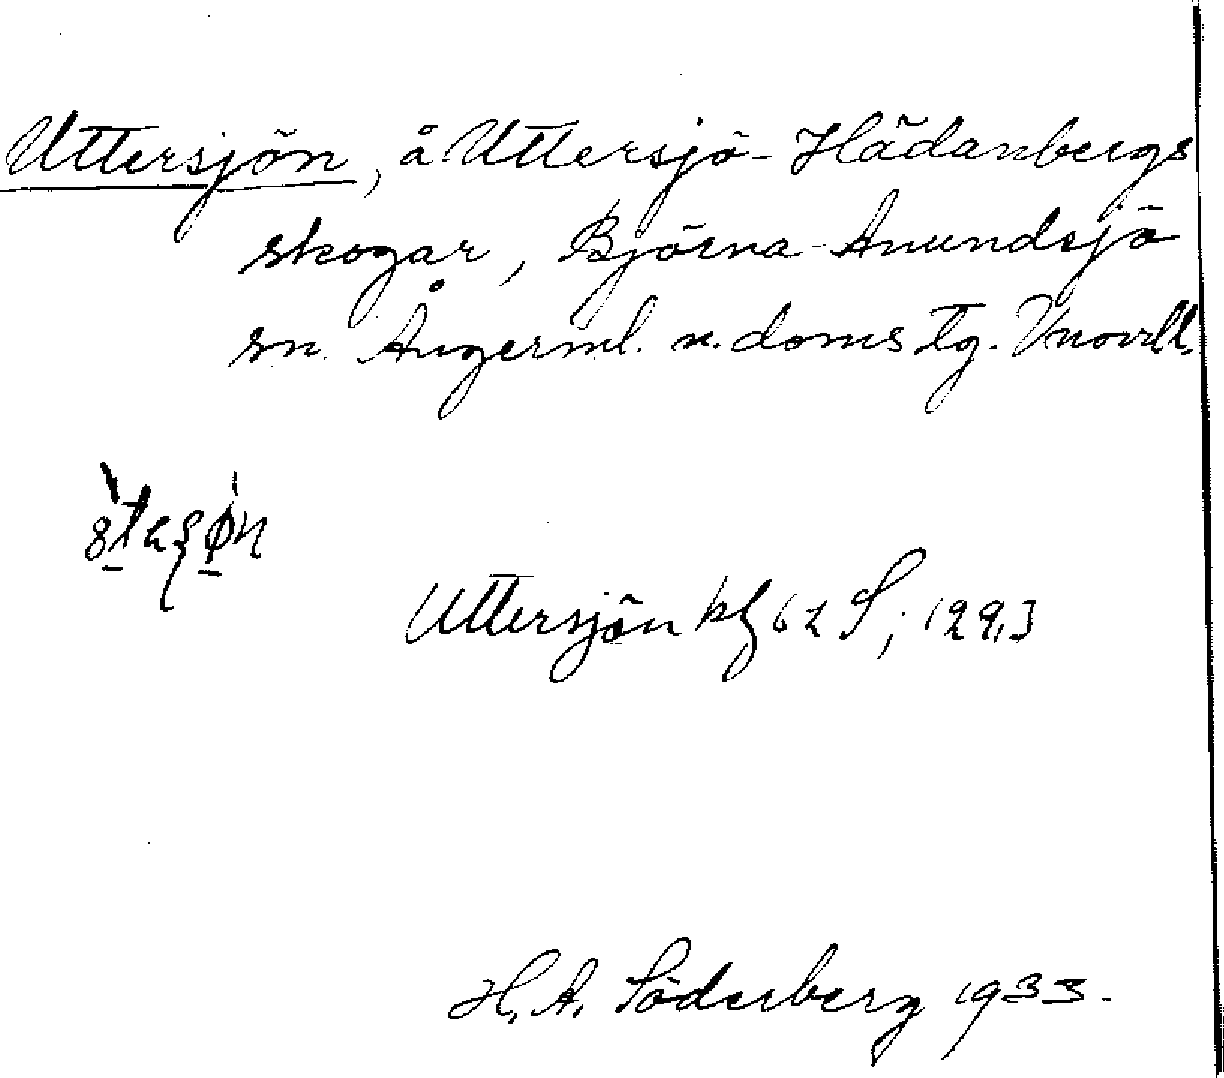 Uttersjön, å Uttersjö-Hädanbergs
skogar, Björna-Anundsjö
sn. Ångerml. n. doms tg. Vnorrl.
Uttersjön kbl 62 S; 129,3
H. A. Söderberg 1933.